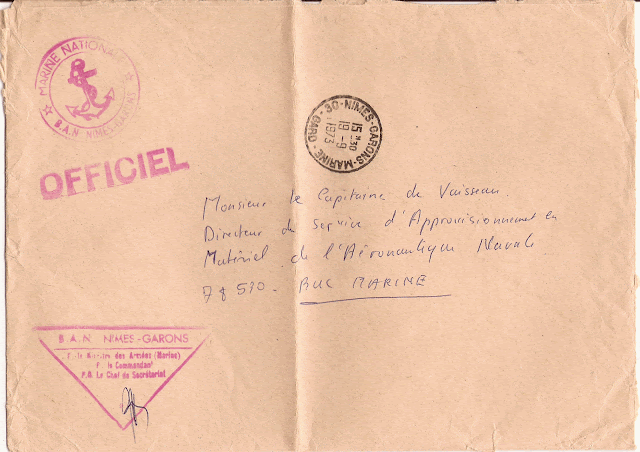 MARINE NATIONALE
B.A.N NIMES-GARONS
OFFICIEL
30-NIMES-GARONS-MARINE-GARD
15H30
19-9
1973
Monsieur le Capitaine de Vaisseau
Directeur du Service d'Approvisionnement en
Matériel de l'Aéronautique Navale
78 510 - BUC MARINE
B.A.N NIMES-GARONS
Ministre des Armées (Marine)
P. le Commandant
P.O. Le Chef de Secrétariat